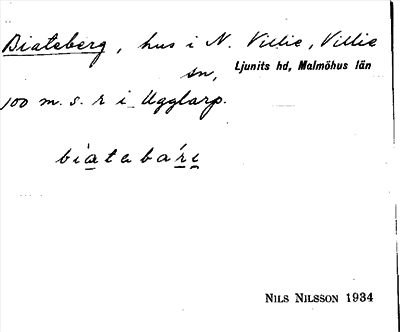 Biateberg, hus i N. Villie, Villie
sn, Ljunits hd, Malmöhus län
100 m. s. r i Ugglarp.
bìatabári̯
NILS NILSSON 1934